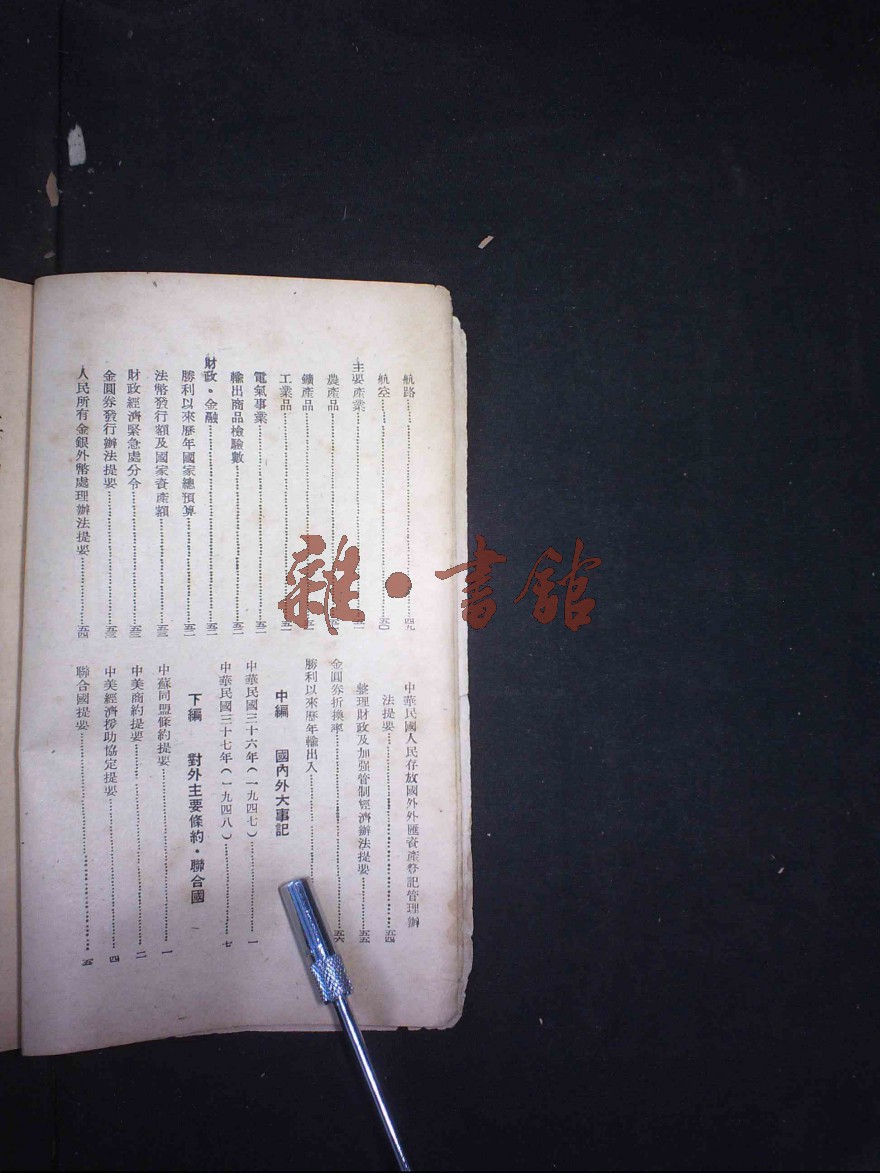 航路……四九
航空……五〇
主要產業……五一
農產品……五一
鑛產品……五一
工業品……五一
電氣事業……五一
輸出商品檢驗數……五一
財政・金融……五二
勝利以來歷年國家總預算……五二
法幣發行額及國家資產額……五三
財政經濟緊急處分令……五三
金圓券發行辦法提要……五三
人民所有金銀外幣處理辦法提要……五四
中華民國人民存放國外外匯資產登記管理辦
法提要……五四
整理財政及加强管制經濟辦法提要……五五
金圓券折換率……五六
勝利以來歷年輸出入……
中編 國內外大事記
中華民國三十六年(一九四七)……一
中華民國三十七年(一九四八)……七
下編 對外主要條約・聯合國
中蘇同盟條約提要……一
中美商約提要……二
中美經濟援助協定提要……四
聯合國提要……五
雜・書館